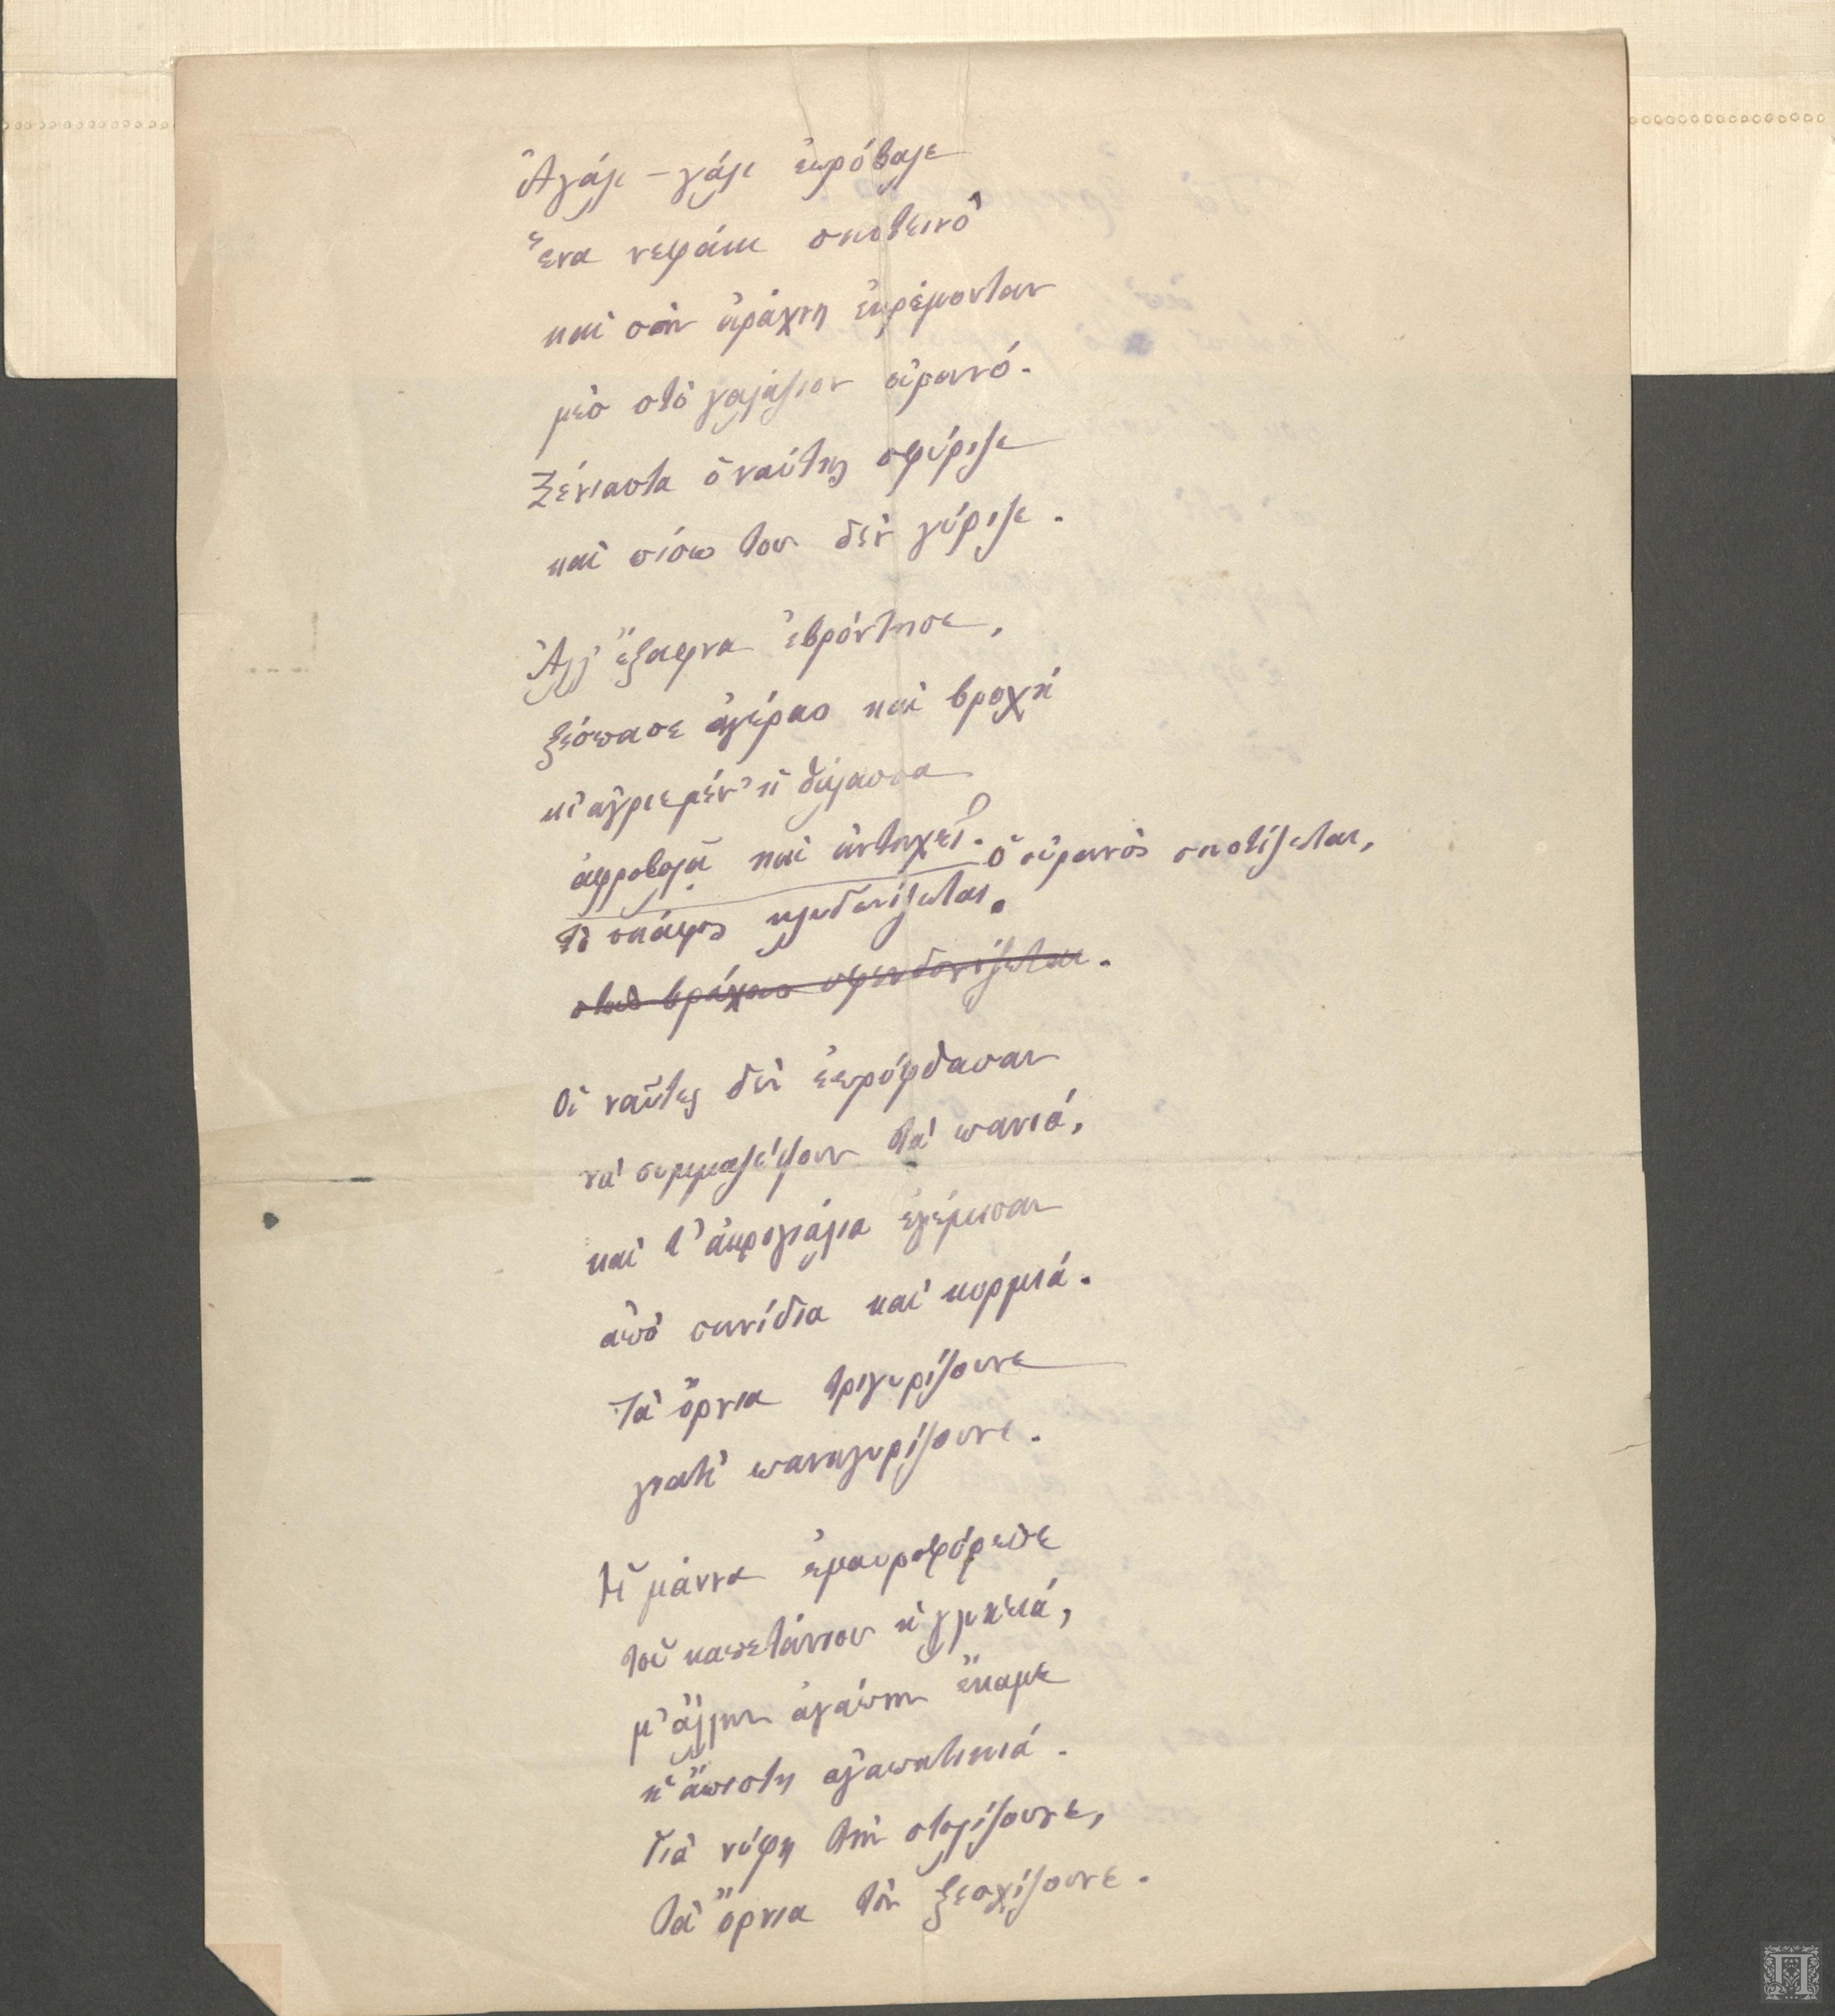 Ἀγάλι – γάλι ἐπρόβαλε
ἕνα νεφάκι σκοτεινό
καὶ σὰν ἀράχνη ἐκρέμονταν
μὲσ στὸ γαλάζιον οὐρανό.
Ξένιαστα ὁ ναύτης σφύριζε
καὶ πίσω του δὲν γύριζε.
Ἀλλ' ἔξαφνα ἐβρόντησε,
ξέσπασε ἀγέρας καὶ βροχή
κι' ἀγριεμέν' ἡ θάλασσα
ἀφροβολᾷ καὶ ἀντηχεῖ.
ὁ οὐρανὸς σκοτίζεται,
τὸ σκάφος κλυδωνίζεται.
στοὺς βράχους σφενδονίζεται.
Οἱ ναῦτες δὲν ἐπρόφθασαν
νὰ συμμαζέψουν τὰ πανιά,
καὶ τ' ἀκρογιάλια ἐγέμισαν
ἀπὸ σανίδια καὶ κορμιά.
Τὰ ὄρνια τριγυρίζουνε
γιατὶ πανηγυρίζουνε.
Ἡ μάννα ἐμαυροφόρεσε
τοῦ καπετάνιου ἡ γρηά,
μ' ἄλλην ἀγάπην ἔκαμε
ἡ ἄπιστη ἀγαπητικιά.
Γιὰ νύφη τὴν στολίζουνε,
τὰ ὄρνια τὸν ξεσχίζουνε.